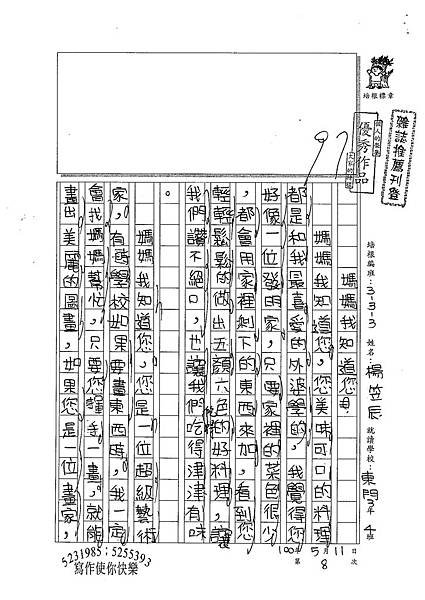 培根標章
雜誌推薦刊登
優秀作品
97
培根編班：3-3-3 姓名：楊笠辰 就讀學校：東門3年4班
100年5月11日
第8次
媽媽我知道您
媽媽我知道您，您美味可口的料理
都是和我最喜愛的外婆學的，我覺得您
好像一位發明家，只要家裡的菜色很少
，都會用家裡剩下的東西來加，看到您
輕輕鬆鬆的做出五顏六色的好料理，讓
我們讚不絕口，也讓我們吃得津津有味
。
媽媽我知道您，您是一位超級藝術
家，有時學校如果要畫東西時，我一定
會找媽媽幫忙，只要您手一畫，就能
畫出美麗的圖畫，如果您是一位畫家，
5231985；5255393
寫作使你快樂